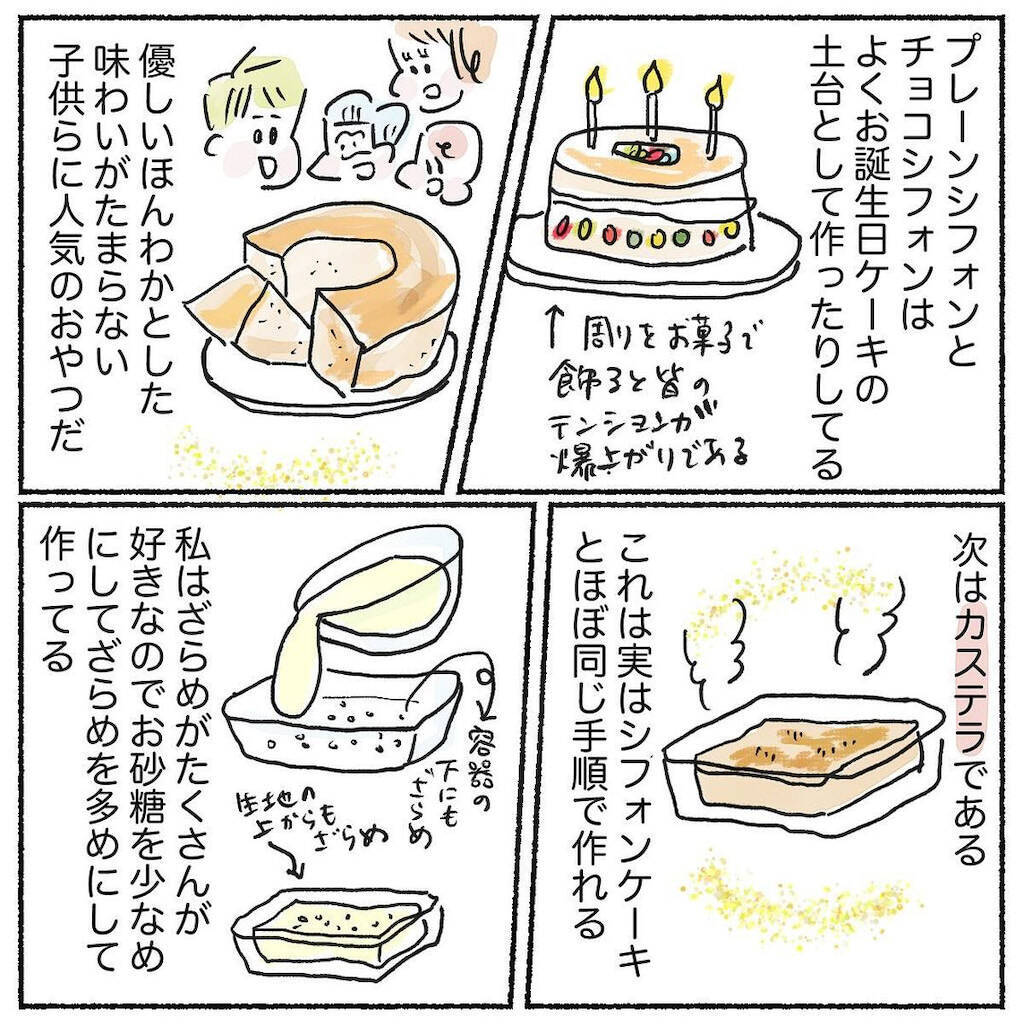 プレーンシフォンと
チョコシフォンは
よくお誕生日ケーキの
土台として作ったりしてる
↑周りをお菓子で
飾ると皆の
テンションが
爆上がりである
優しいほんわかとした
味わいがたまらない
子供らに人気のおやつだ
次はカステラである
これは実はシフォンケーキ
とほぼ同じ手順で作れる
容器の
下にも
ざらめ
生地の
上からも
ざらめ
私はざらめがたくさんが
好きなのでお砂糖を少なめ
にしてざらめを多めにして
作ってる